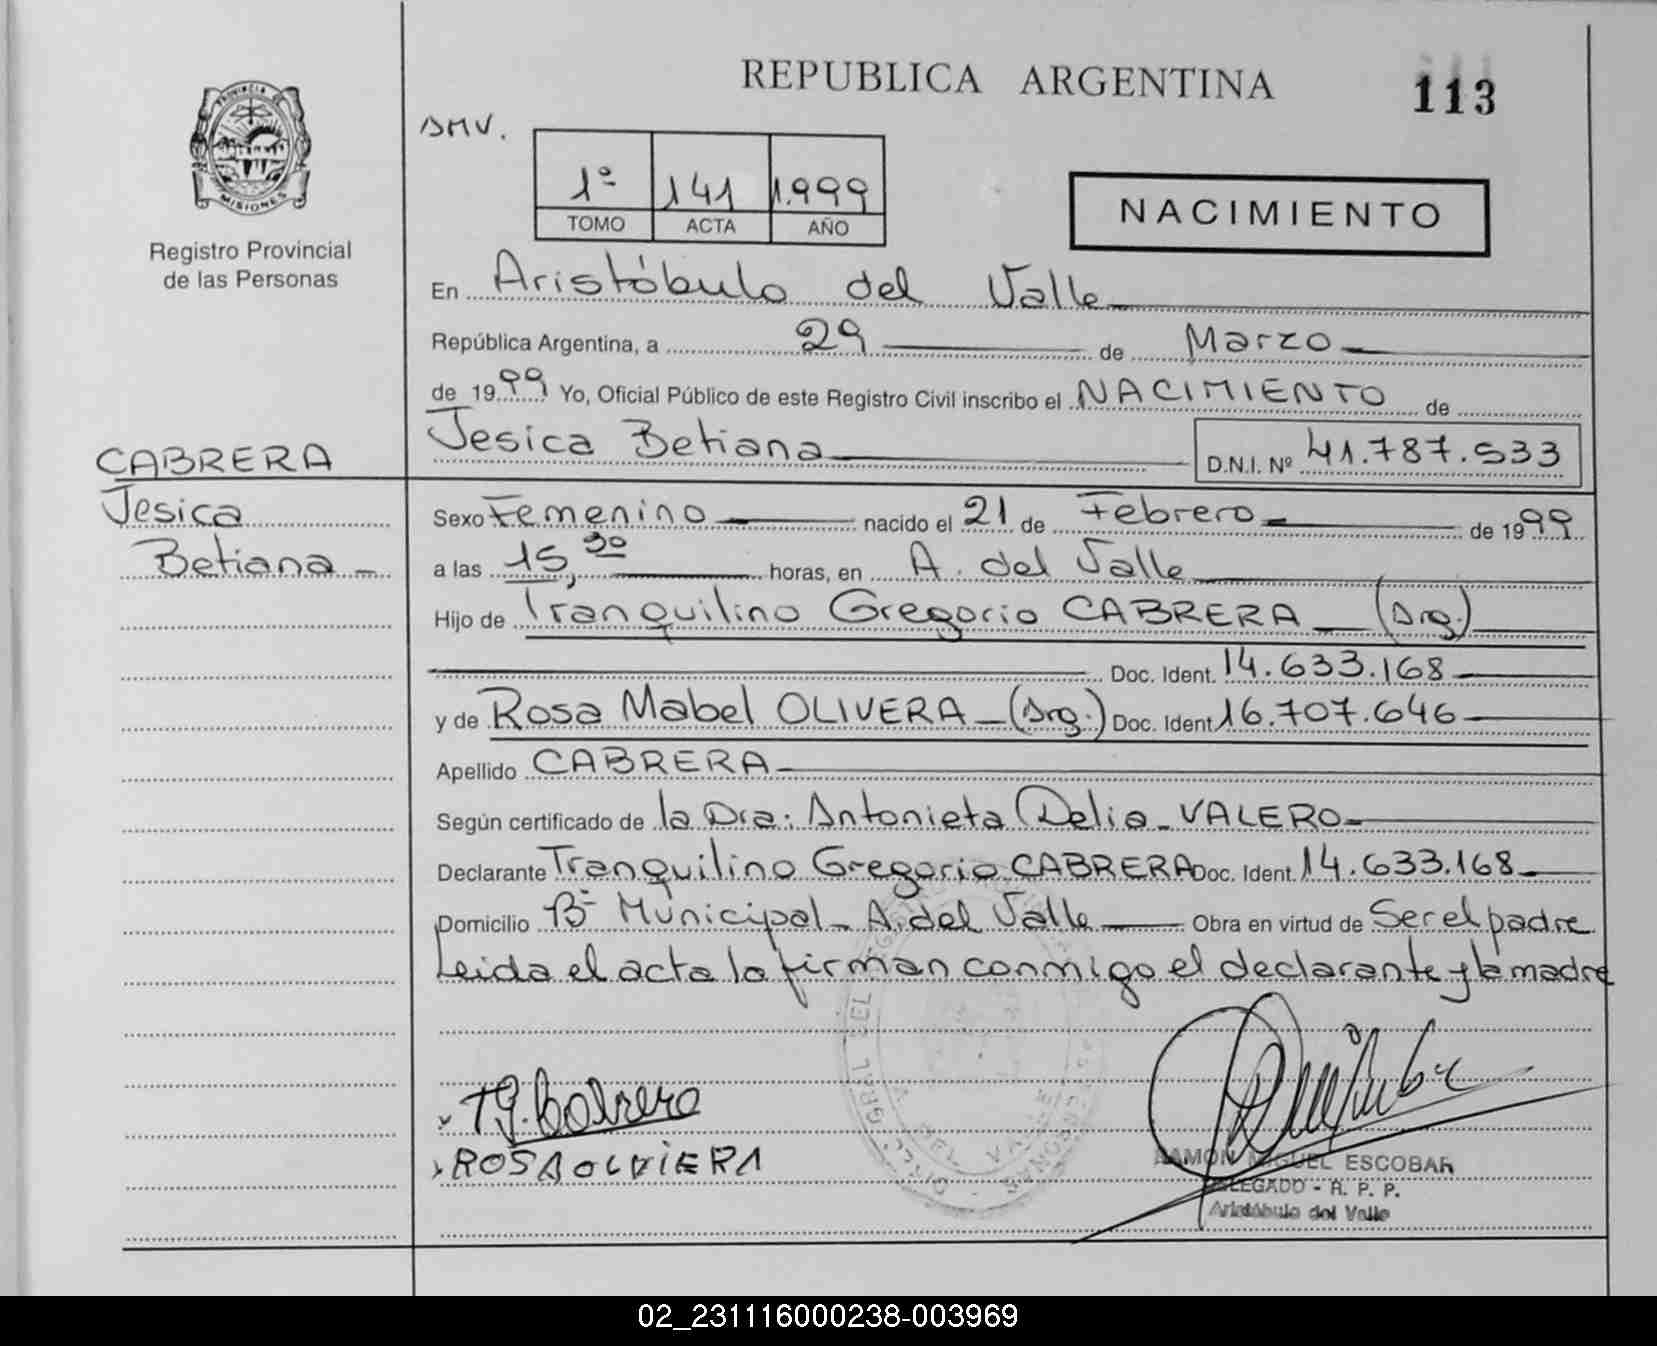 REPUBLICA ARGENTINA
113
PROVINCIA DE
MISIONES
Registro Provincial
de las Personas
1º 141 1.999
TOMO ACTA AÑO
NACIMIENTO
En Aristóbulo del Valle
República Argentina, a 29 de Marzo
de 1999 Yo, Oficial Público de este Registro Civil inscribo el NACIMIENTO de
Jesica Betiana D.N.I. Nº 41.787.533
CABRERA
Jesica
Betiana
Sexo Femenino nacido el 21 de Febrero de 1999
a las 15,30 horas, en A. del Valle
Hijo de Tranquilino Gregorio CABRERA (Arg.)
Doc. Ident. 14.633.168
y de Rosa Mabel OLIVERA (Arg.) Doc. Ident 16.707.646
Apellido CABRERA
Según certificado de la Dra: Antonieta Delia VALERO
Declarante Tranquilino Gregorio CABRERA Doc. Ident. 14.633.168
Domicilio Bº Municipal - A. del Valle Obra en virtud de Ser el padre
Leida el acta la firman conmigo el declarante y la madre
T G. Cabrera
RAMON MIGUEL ESCOBAR
DELEGADO - R. P. P.
Aristóbulo del Valle
02_231116000238-003969